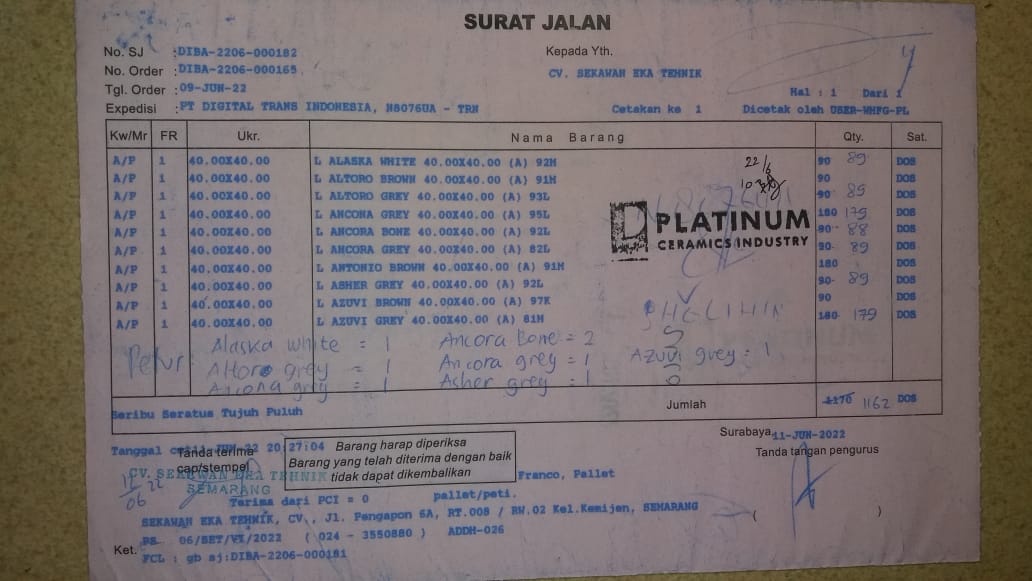 SURAT JALAN
No. SJ : DIBA-2206-000182
Kepada Yth.
No. Order : DIBA-2206-000165
CV. SEKAWAN EKA TEHNIK
Tgl. Order : 09-JUN-22
Hal : 1 Dari 1
Expedisi : PT DIGITAL TRANS INDONESIA, N8076UA - TRN
Cetakan ke 1 Dicetak oleh USER-WHFG-PL
Kw/Mr FR Ukr. Nama Barang Qty. Sat.
A/P 1 40.00X40.00 L ALASKA WHITE 40.00X40.00 (A) 92M 90 89 DOS
A/P 1 40.00X40.00 L ALTORO BROWN 40.00X40.00 (A) 91M 90 DOS
A/P 1 40.00X40.00 L ALTORO GREY 40.00X40.00 (A) 93L 90 89 DOS
A/P 1 40.00X40.00 L ANCONA GREY 40.00X40.00 (A) 95L 180 179 DOS
A/P 1 40.00X40.00 L ANCORA BONE 40.00X40.00 (A) 92L 90 88 DOS
A/P 1 40.00X40.00 L ANCORA GREY 40.00X40.00 (A) 82L 90 89 DOS
A/P 1 40.00X40.00 L ANTONIO BROWN 40.00X40.00 (A) 91M 180 DOS
A/P 1 40.00X40.00 L ASHER GREY 40.00X40.00 (A) 92L 90 89 DOS
A/P 1 40.00X40.00 L AZUVI BROWN 40.00X40.00 (A) 97K 90 DOS
A/P 1 40.00X40.00 L AZUVI GREY 40.00X40.00 (A) 81M 180 179 DOS
22/6
PLATINUM
CERAMICS INDUSTRY
Alaska white = 1 Ancora bone = 2
Altoro grey = 1 Ancora grey = 1 Azuvi grey = 1
Ancona grey = 1 Asher grey = 1
Seribu Seratus Tujuh Puluh
Jumlah 1170 1162 DOS
Surabaya, 11-JUN-2022
Tanggal JUN-22 20:27:04
Tanda terima
cap/stempel
Barang harap diperiksa
Barang yang telah diterima dengan baik
tidak dapat dikembalikan
Tanda tangan pengurus
CV. SEKAWAN EKA TEHNIK
SEMARANG
22
06
Franco, Pallet
Terima dari PCI = 0 pallet/peti.
SEKAWAN EKA TEHNIK, CV., Jl. Pengapon 6A, RT.008 / RW.02 Kel.Kemijen, SEMARANG
06/SET/VI/2022 ( 024 - 3550880 ) ADDH-026
( )
Ket.
FCL : gb sj:DIBA-2206-000181